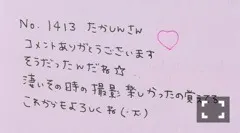 No. 1413 たかしんさん
コメントありがとうございます
そうだったんだね☆
凄いその時の撮影 楽しかったの覚えてる
これからもよろしくね(·ㅈ·)